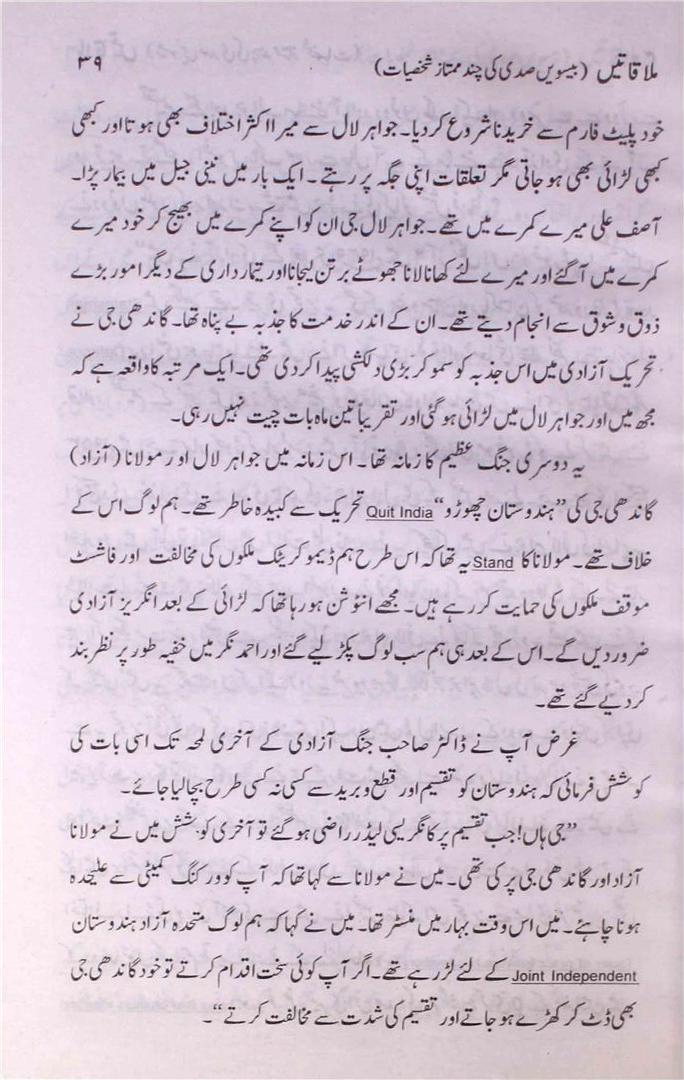 ملاقاتیں (بیسویں صدی کی چند ممتاز شخصیات) ۳۹
خود پلیٹ فارم سے خریدنا شروع کردیا۔ جواہر لال سے میرا اکثر اختلاف بھی ہوتا اور کبھی
کبھی لڑائی بھی ہوجاتی مگر تعلقات اپنی جگہ پر رہتے ۔ ایک بار میں نینی جیل میں بیمار پڑا۔
آصف علی میرے کمرے میں تھے۔ جواہر لال جی ان کو اپنے کمرے میں بھیج کر خود میرے
کمرے میں آگئے اور میرے لئے کھانا لانا جھوٹے برتن لیجانا اور تیمارداری کے دیگر امور بڑے
ذوق و شوق سے انجام دیتے تھے۔ ان کے اندر خدمت کا جذبہ بے پناہ تھا۔ گاندھی جی نے
تحریک آزادی میں اس جذبہ کو سمو کر بڑی دلکشی پیدا کردی تھی۔ ایک مرتبہ کا واقعہ ہے کہ
مجھ میں اور جواہر لال میں لڑائی ہوگئی اور تقریباً تین ماہ بات چیت نہیں رہی۔
یہ دوسری جنگ عظیم کا زمانہ تھا۔ اس زمانہ میں جواہر لال اور مولانا (آزاد)
گاندھی جی کی ”ہندوستان چھوڑو“ Quit India تحریک سے کبیدہ خاطر تھے۔ ہم لوگ اس کے
خلاف تھے۔ مولانا کا Stand یہ تھا کہ اس طرح ہم ڈیموکریٹک ملکوں کی مخالفت اور فاشسٹ
موقف ملکوں کی حمایت کر رہے ہیں۔ مجھے انٹوشن ہورہا تھا کہ لڑائی کے بعد انگریز آزادی
ضرور دیں گے۔ اس کے بعد ہی ہم سب لوگ پکڑ لیے گئے اور احمد نگر میں خفیہ طور پر نظر بند
کر دیے گئے تھے۔
غرض آپ نے ڈاکٹر صاحب جنگ آزادی کے آخری لمحہ تک اسی بات کی
کوشش فرمائی کہ ہندوستان کو تقسیم اور قطع و برید سے کسی نہ کسی طرح بچالیا جائے۔
”جی ہاں! جب تقسیم پر کانگریسی لیڈر راضی ہوگئے تو آخری کوشش میں نے مولانا
آزاد اور گاندھی جی پر کی تھی۔ میں نے مولانا سے کہا تھا کہ آپ کو ورکنگ کمیٹی سے علیحدہ
ہونا چاہئے۔ میں اس وقت بہار میں منسٹر تھا۔ میں نے کہا کہ ہم لوگ متحدہ آزاد ہندوستان
Joint Independent کے لئے لڑ رہے تھے۔ اگر آپ کوئی سخت اقدام کرتے تو خود گاندھی جی
بھی ڈٹ کر کھڑے ہوجاتے اور تقسیم کی شدت سے مخالفت کرتے“۔